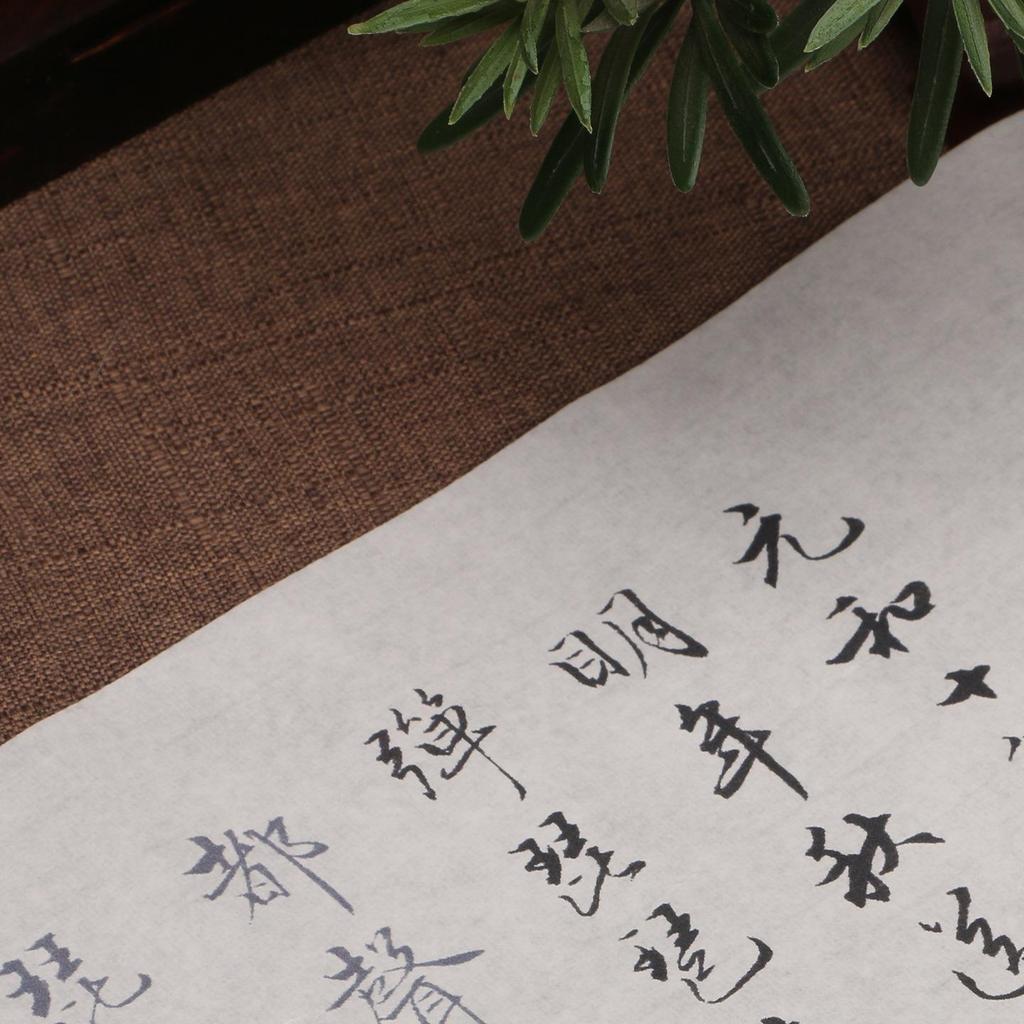 元和十
明年秋送
彈琵琶
都聲
琵